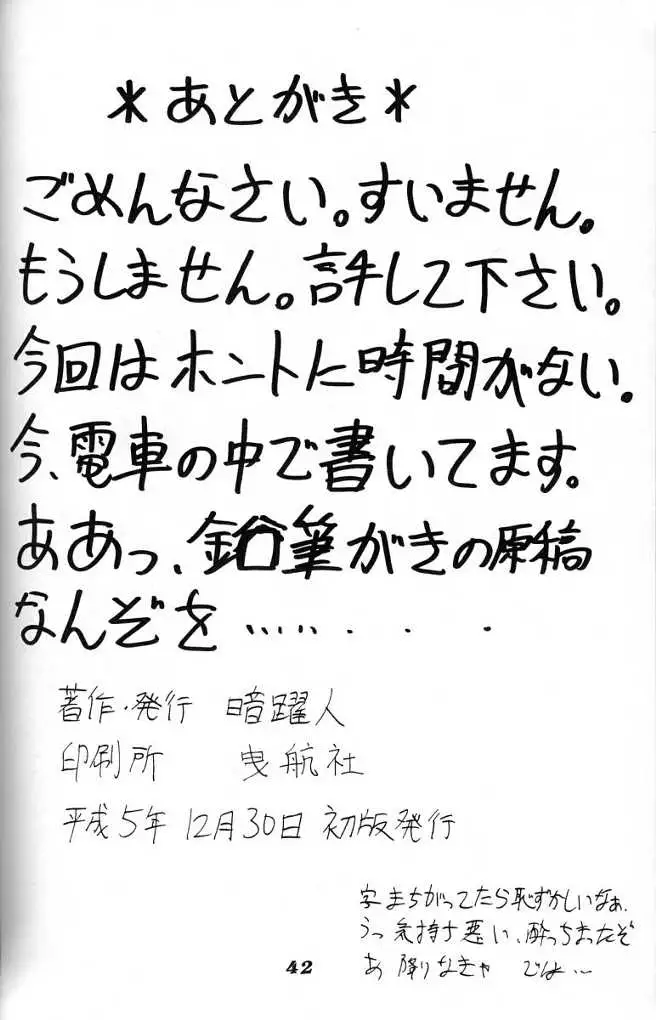 *あとがき*
ごめんなさい。すいません。
もうしません。許して下さい。
今回はホントに時間がない。
今、電車の中で書いてます。
ああっ、鉛筆がきの原稿
なんぞを……・・・
著作・発行 暗躍人
印刷所 曳航社
平成5年12月30日 初版発行
字まちがってたら恥ずかしいなぁ、
うっ気持ち悪い、酔っちまったぞ
あ 降りなきゃ では…
42